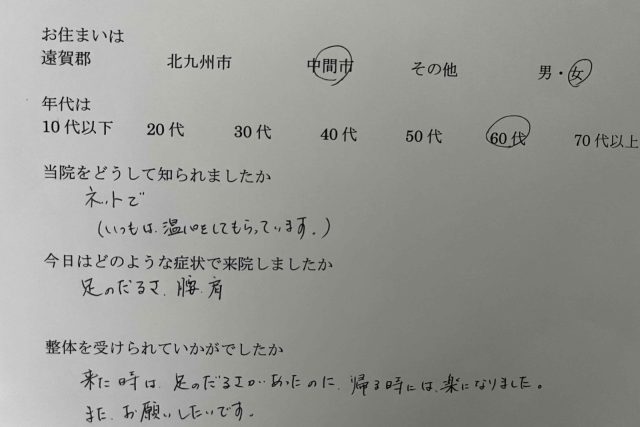 お住まいは
遠賀郡 北九州市 中間市 その他 男・女
年代は
10代以下 20代 30代 40代 50代 60代 70代以上
当院をどうして知られましたか
ネットで
(いつもは、温心をしてもらっています。)
今日はどのような症状で来院しましたか
足のだるさ、腰、肩
整体を受けられていかがでしたか
来た時は、足のだるさがあったのに、帰る時には、楽になりました。
また、お願いしたいです。